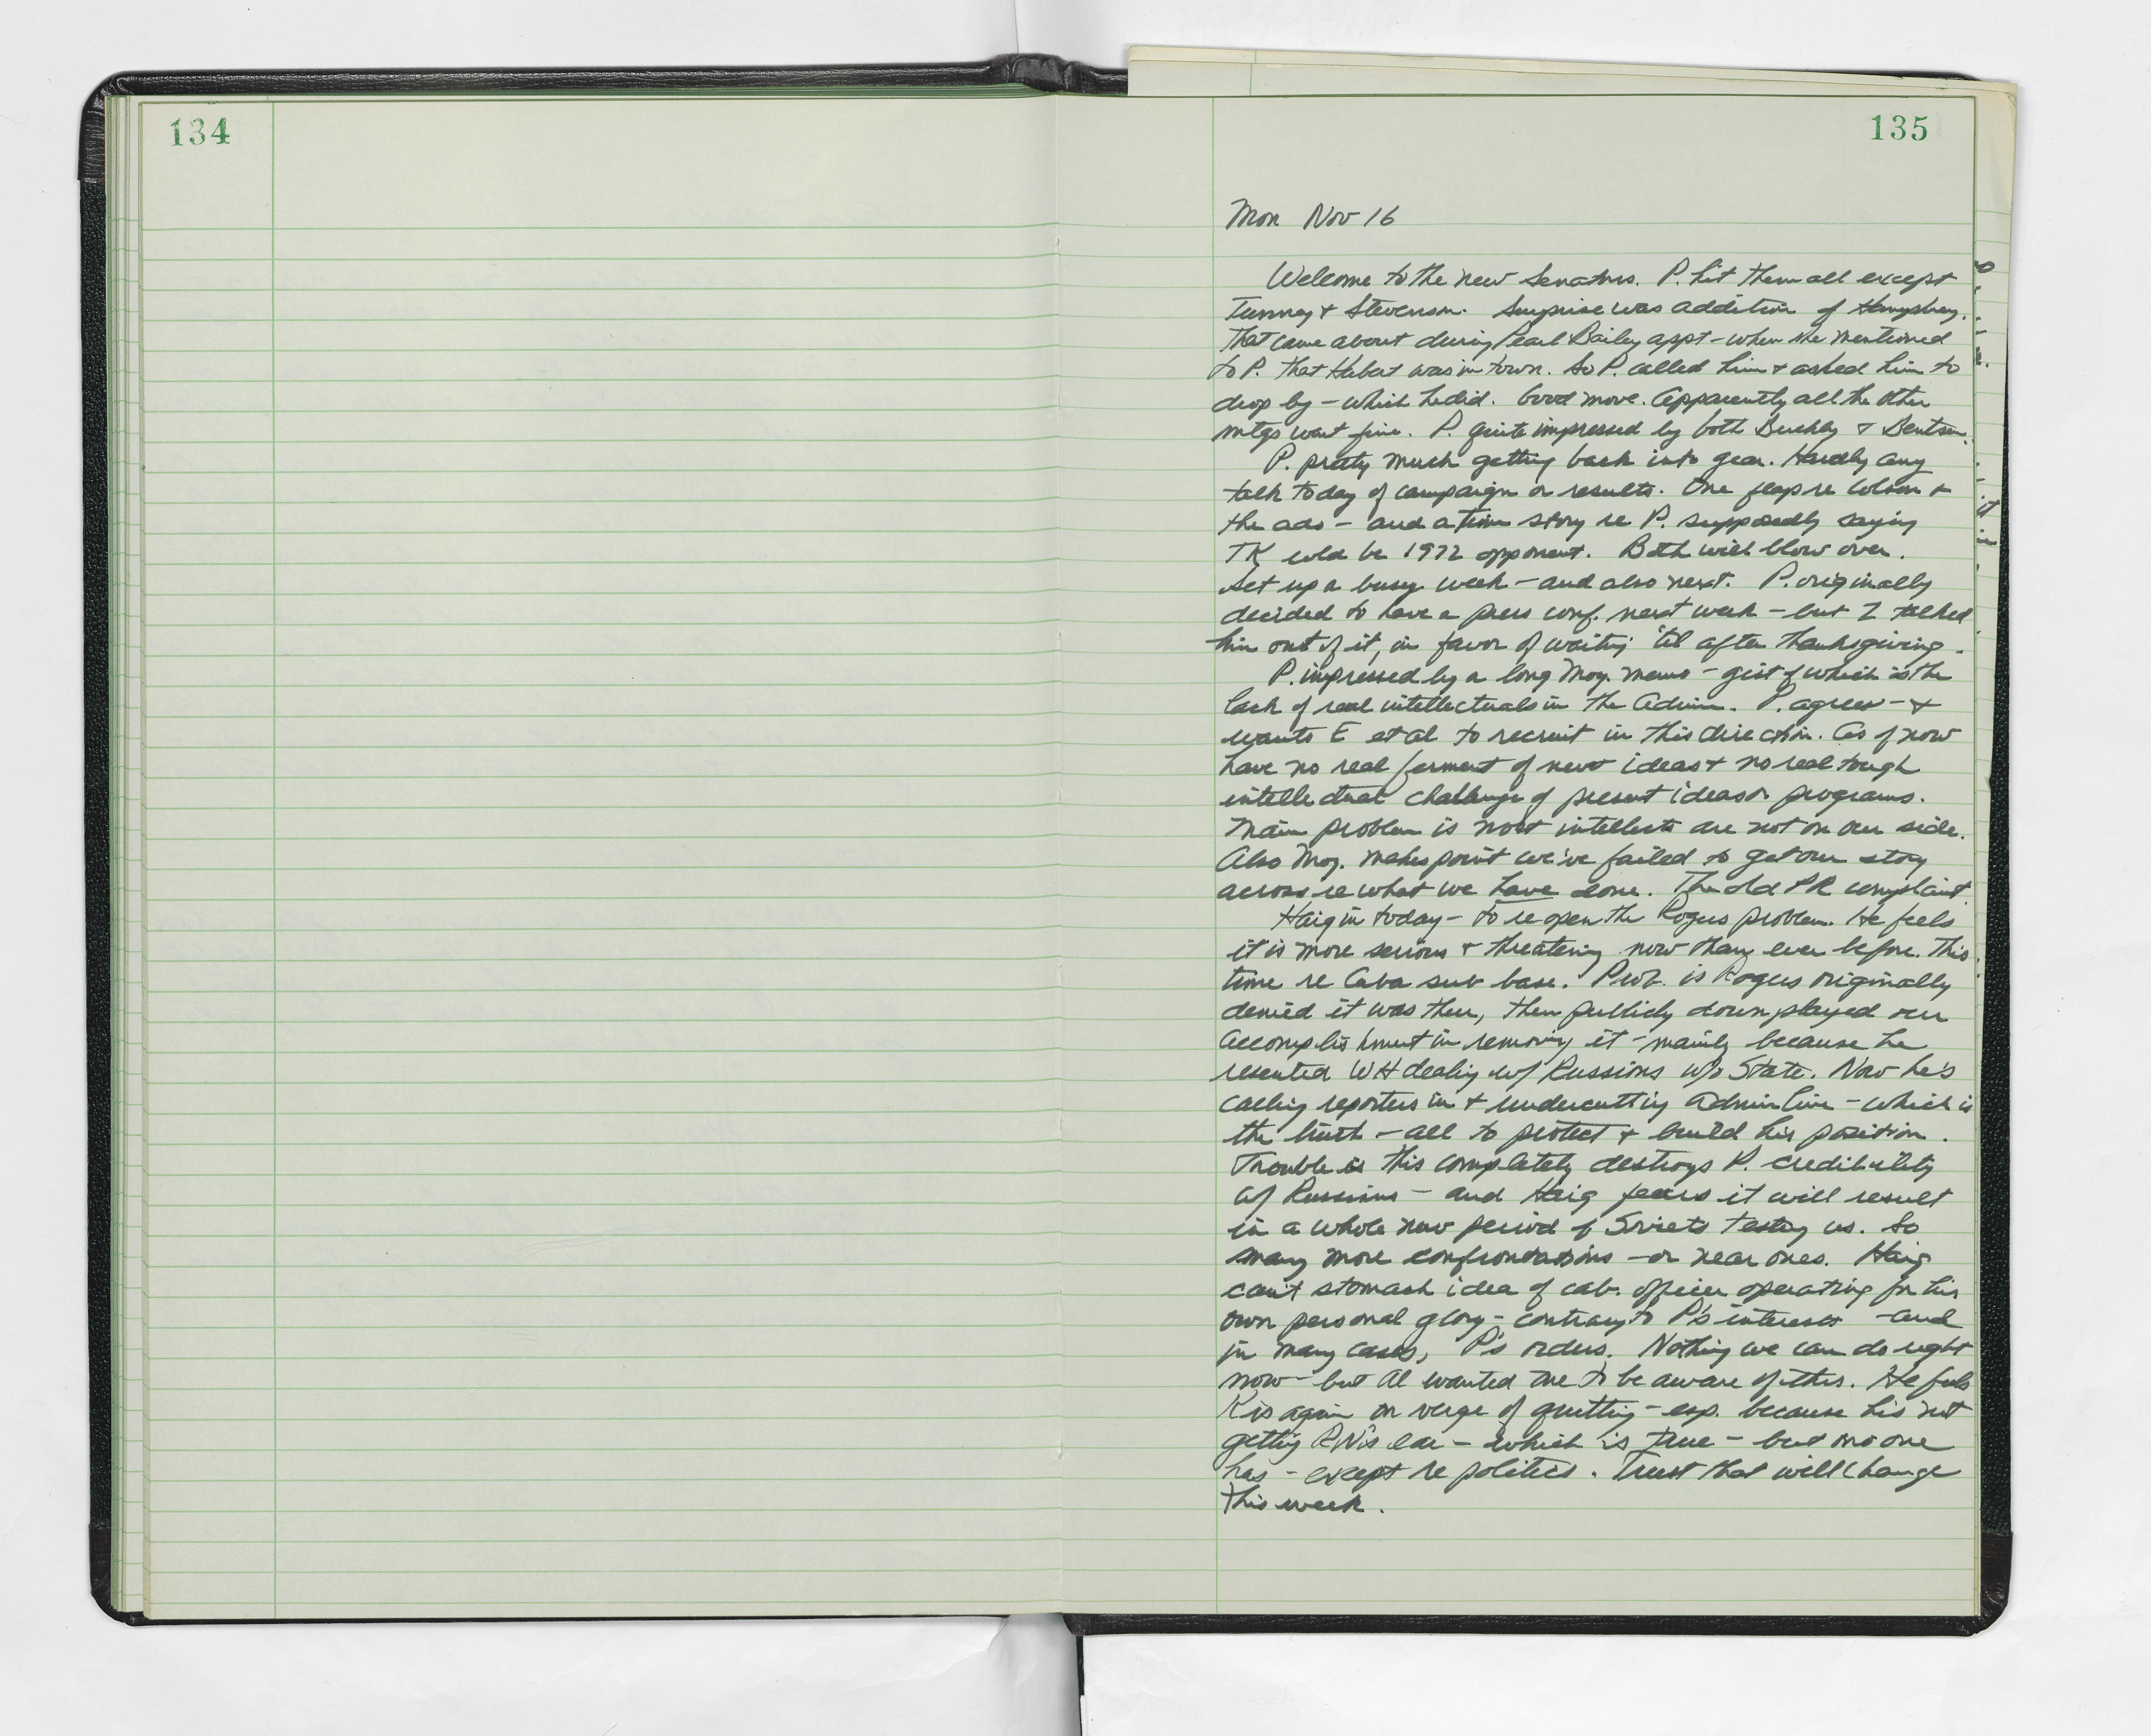 134
135
Mon Nov 16
Welcome to the new Senators. P. hit them all except
Tunney + Stevenson. Surprise was addition of Humphrey.
That came about during Pearl Bailey appt - when she mentioned
to P. that Hubert was in town. So P. called him + asked him to
drop by - which he did. Good move. Apparently all the other
mtgs went fine. P. quite impressed by both Buckley + Bentsen.
P. pretty much getting back into gear. Hardly any
talk today of campaign or results. One flap re Colson +
the ads - and a Time story re P. supposedly saying
TK wld be 1972 opponent. Both will blow over.
Set up a busy week - and also next. P. originally
decided to have a press conf. next week - but I talked
him out of it, in favor of waiting 'til after Thanksgiving.
P. impressed by a long Moy. memo - gist of which is the
lack of real intellectuals in the Admin. P. agrees - +
wants E et al to recruit in this direction. As of now
have no real ferment of new ideas + no real tough
intellectual challenge of present ideas or programs.
Main problem is most intellects are not on our side.
Also Moy. makes point we've failed to get our story
across re what we have done. The old PR complaint.
Haig in today - to re open the Rogers problem. He feels
it is more serious + threatening now than ever before. This
time re Cuba sub base. Prob. is Rogers originally
denied it was there, then publicly downplayed our
accomplishment in removing it - mainly because he
resented WH dealing w/ Russians w/o State. Now he's
calling reporters in + undercutting Admin line - which is
the truth - all to protect + build his position.
Trouble is this completely destroys P. credibility
w/ Russians - and Haig fears it will result
in a whole new period of Soviets testing us. So
many more confrontations - or near ones. Haig
can't stomach idea of cab. officer operating for his
own personal glory - contrary to P's interests - and
in many cases, P's orders. Nothing we can do right
now - but Al wanted me to be aware of this. He feels
K is again on verge of quitting - esp. because his not
getting RN's ear - which is true - but no one
has - except re politics. Trust that will change
this week.